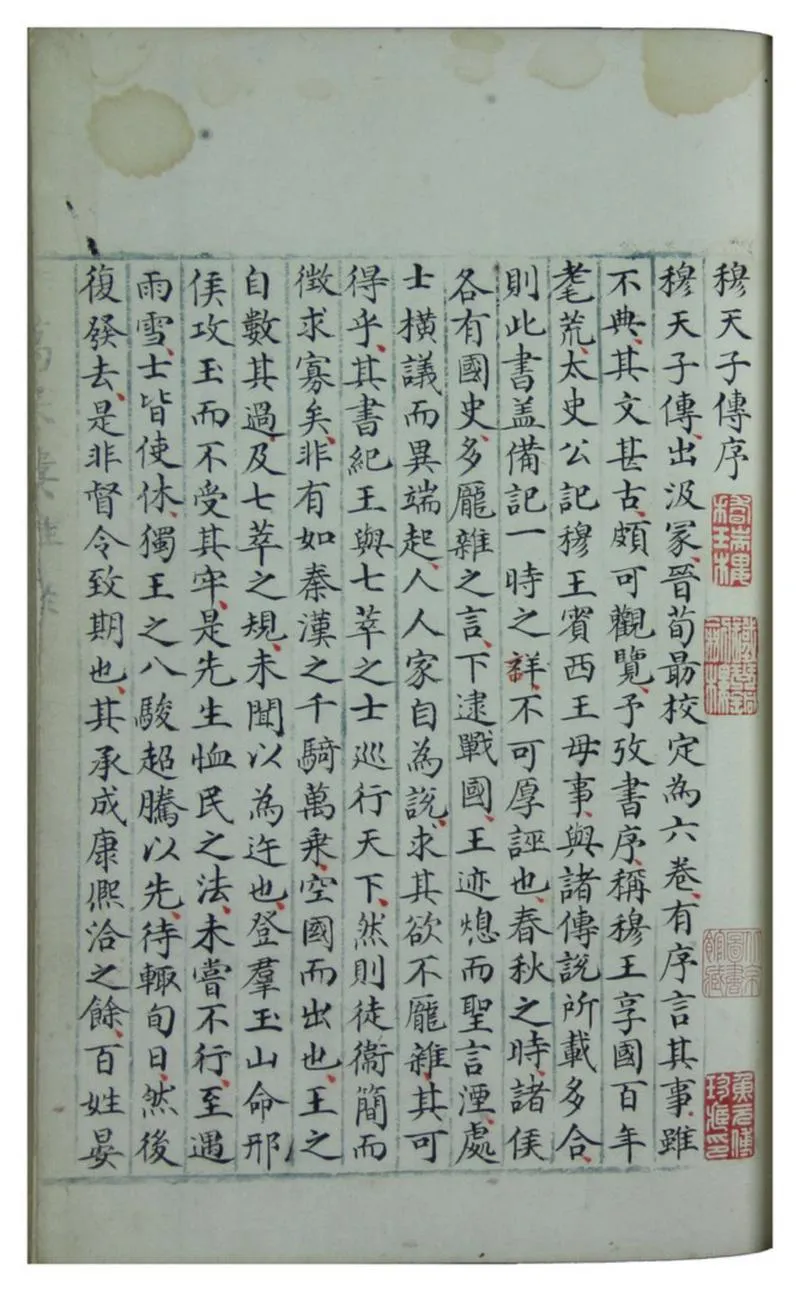 穆天子傳序
穆天子傳、出汲冢、晉荀勗校定為六卷、有序言其事、雖
不典、其文甚古、頗可觀覽、予攷書序、稱穆王享國百年
耄荒、太史公記穆王賓西王母事、與諸傳說所載多合、
則此書盖備記一時之詳、不可厚誣也、春秋之時、諸侯
各有國史、多厖雜之言、下逮戰國、王迹熄而聖言湮、處
士橫議而異端起、人人家自為說、求其欲不厖雜、其可
得乎、其書紀王與七萃之士巡行天下、然則徒衞簡而
徵求寡矣、非有如秦漢之千騎萬乘、空國而出也、王之
自數其過、及七萃之規、未聞以為迕也、登羣玉山命邢
侯攻玉而不受其牢、是先生恤民之法、未嘗不行、至遇
雨雪、士皆使休、獨王之八駿超騰以先、待輙旬日、然後
復發去、是非督令致期也、其承成康熈洽之餘、百姓晏